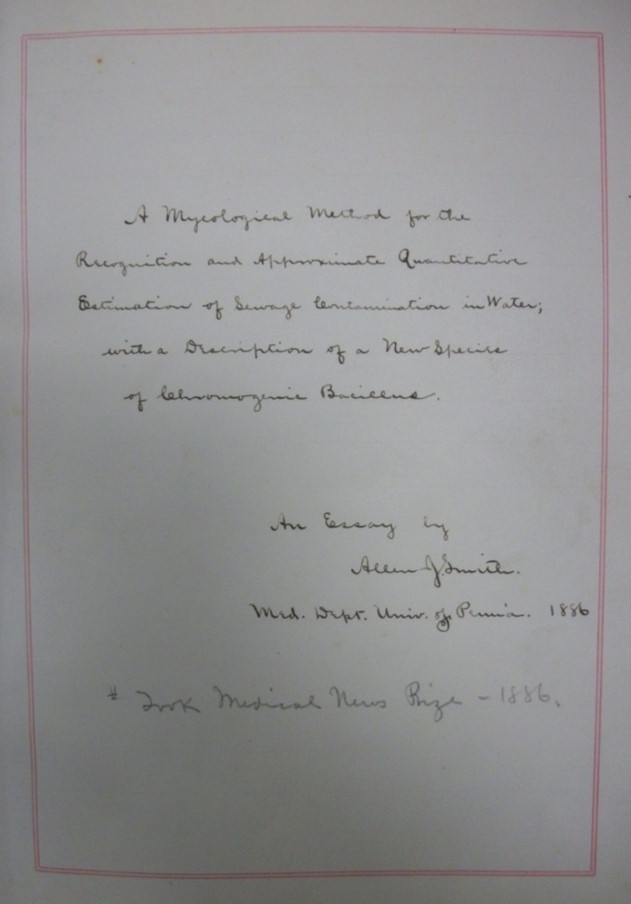 A Mycological Method for the
Recognition and Approximate Quantitative
Estimation of Sewage Contamination in Water;
with a Description of a New Species
of Chromogenic Bacillus.
An Essay by
Allen J. Smith.
Med. Dept. Univ. of Penn'a. 1886
# Took Medical News Prize - 1886.